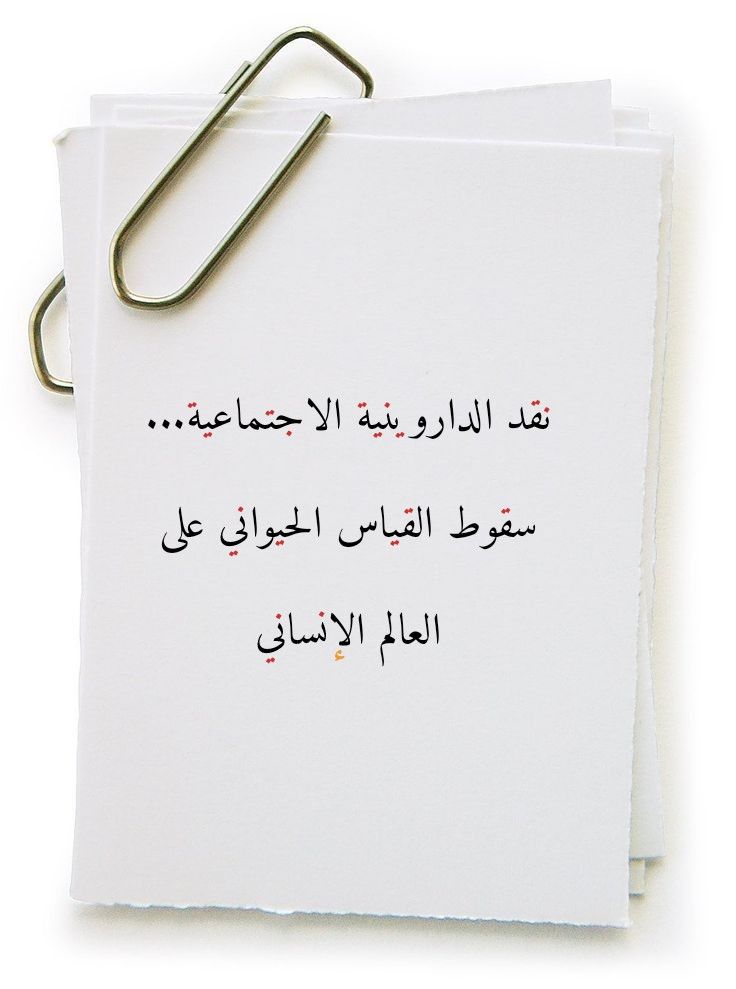 نقد الداروينية الاجتماعية...
سقوط القياس الحيواني على
العالم الإنساني